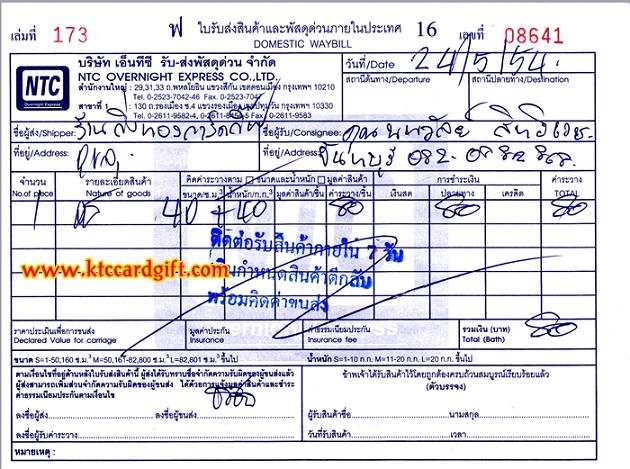 เล่มที่ 173 ฟ ใบรับส่งสินค้าและพัสดุด่วนภายในประเทศ 16 เลขที่ 08641
DOMESTIC WAYBILL
NTC
Overnight Express
บริษัท เอ็นทีซี รับ-ส่งพัสดุด่วน จำกัด
NTC OVERNIGHT EXPRESS CO.,LTD.
สำนักงานใหญ่ : 29,31,33 ถ.พหลโยธิน แขวงสีกัน เขตดอนเมือง กรุงเทพฯ 10210
โทร. 0-2523-7042-46 Fax. 0-2523-7047
สาขาที่ 1 : 130 ถ.รองเมือง ซ.4 แขวงรองเมือง เขตปทุมวัน กรุงเทพฯ 10330
วันที่/Date 24/5/54
สถานีต้นทาง/Departure สถานีปลายทาง/Destination
ชื่อผู้ส่ง/Shipper ชื่อผู้รับ/Consignee:
ที่อยู่/Address: ที่อยู่/Address:
จำนวน รายละเอียดสินค้า คิดค่าระวางตาม ขนาดและน้ำหนัก มูลค่าสินค้า การชำระเงิน ค่าระวาง
No.of piece Nature of goods ขนาด/ซ.ม.³ น้ำหนัก/ก.ก.³ มูลค่าสินค้า/ชิ้น ค่าระวาง/ชิ้น เงินสด ปลายทาง เครดิต TOTAL
1 40 + 40 80 80 80
ติดต่อรับสินค้าภายใน 7 วัน
เกินกำหนดสินค้าตีกลับ
พร้อมคิดค่าขนส่ง
www.ktccardgift.com
ราคาประเมินเพื่อการขนส่ง มูลค่าประกัน ค่าธรรมเนียมประกัน รวมเงิน (บาท) 80
Declared Value for carriage Insurance Insurance fee Total (Bath)
ขนาด S=1-50,160 ซ.ม.³ M=50,161-82,800 ซ.ม.³ L=82,801 ซ.ม.³ ขึ้นไป น้ำหนัก S=1-10 ก.ก. M=11-20 ก.ก. L=20 ก.ก. ขึ้นไป
ตามเงื่อนไขที่อยู่ด้านหลังใบรับส่งสินค้านี้ ผู้ส่งได้รับทราบข้อจำกัดความรับผิดของผู้ขนส่งแล้ว
ผู้ส่งสามารถเพิ่มส่วนจำกัดความรับผิดของผู้ขนส่ง ได้ด้วยการแจ้งมูลค่าสินค้าและชำระ
ค่าธรรมเนียมประกันตามเงื่อนไข
ข้าพเจ้าได้รับสินค้าไว้โดยถูกต้องครบถ้วนสมบูรณ์เรียบร้อยแล้ว
(ตัวบรรจง)
ลงชื่อผู้ส่ง ลงชื่อผู้ขนส่ง ผู้รับสินค้าชื่อ นามสกุล
ลงชื่อผู้รับค่าระวาง วันที่รับสินค้า เวลา
หมายเหตุ :